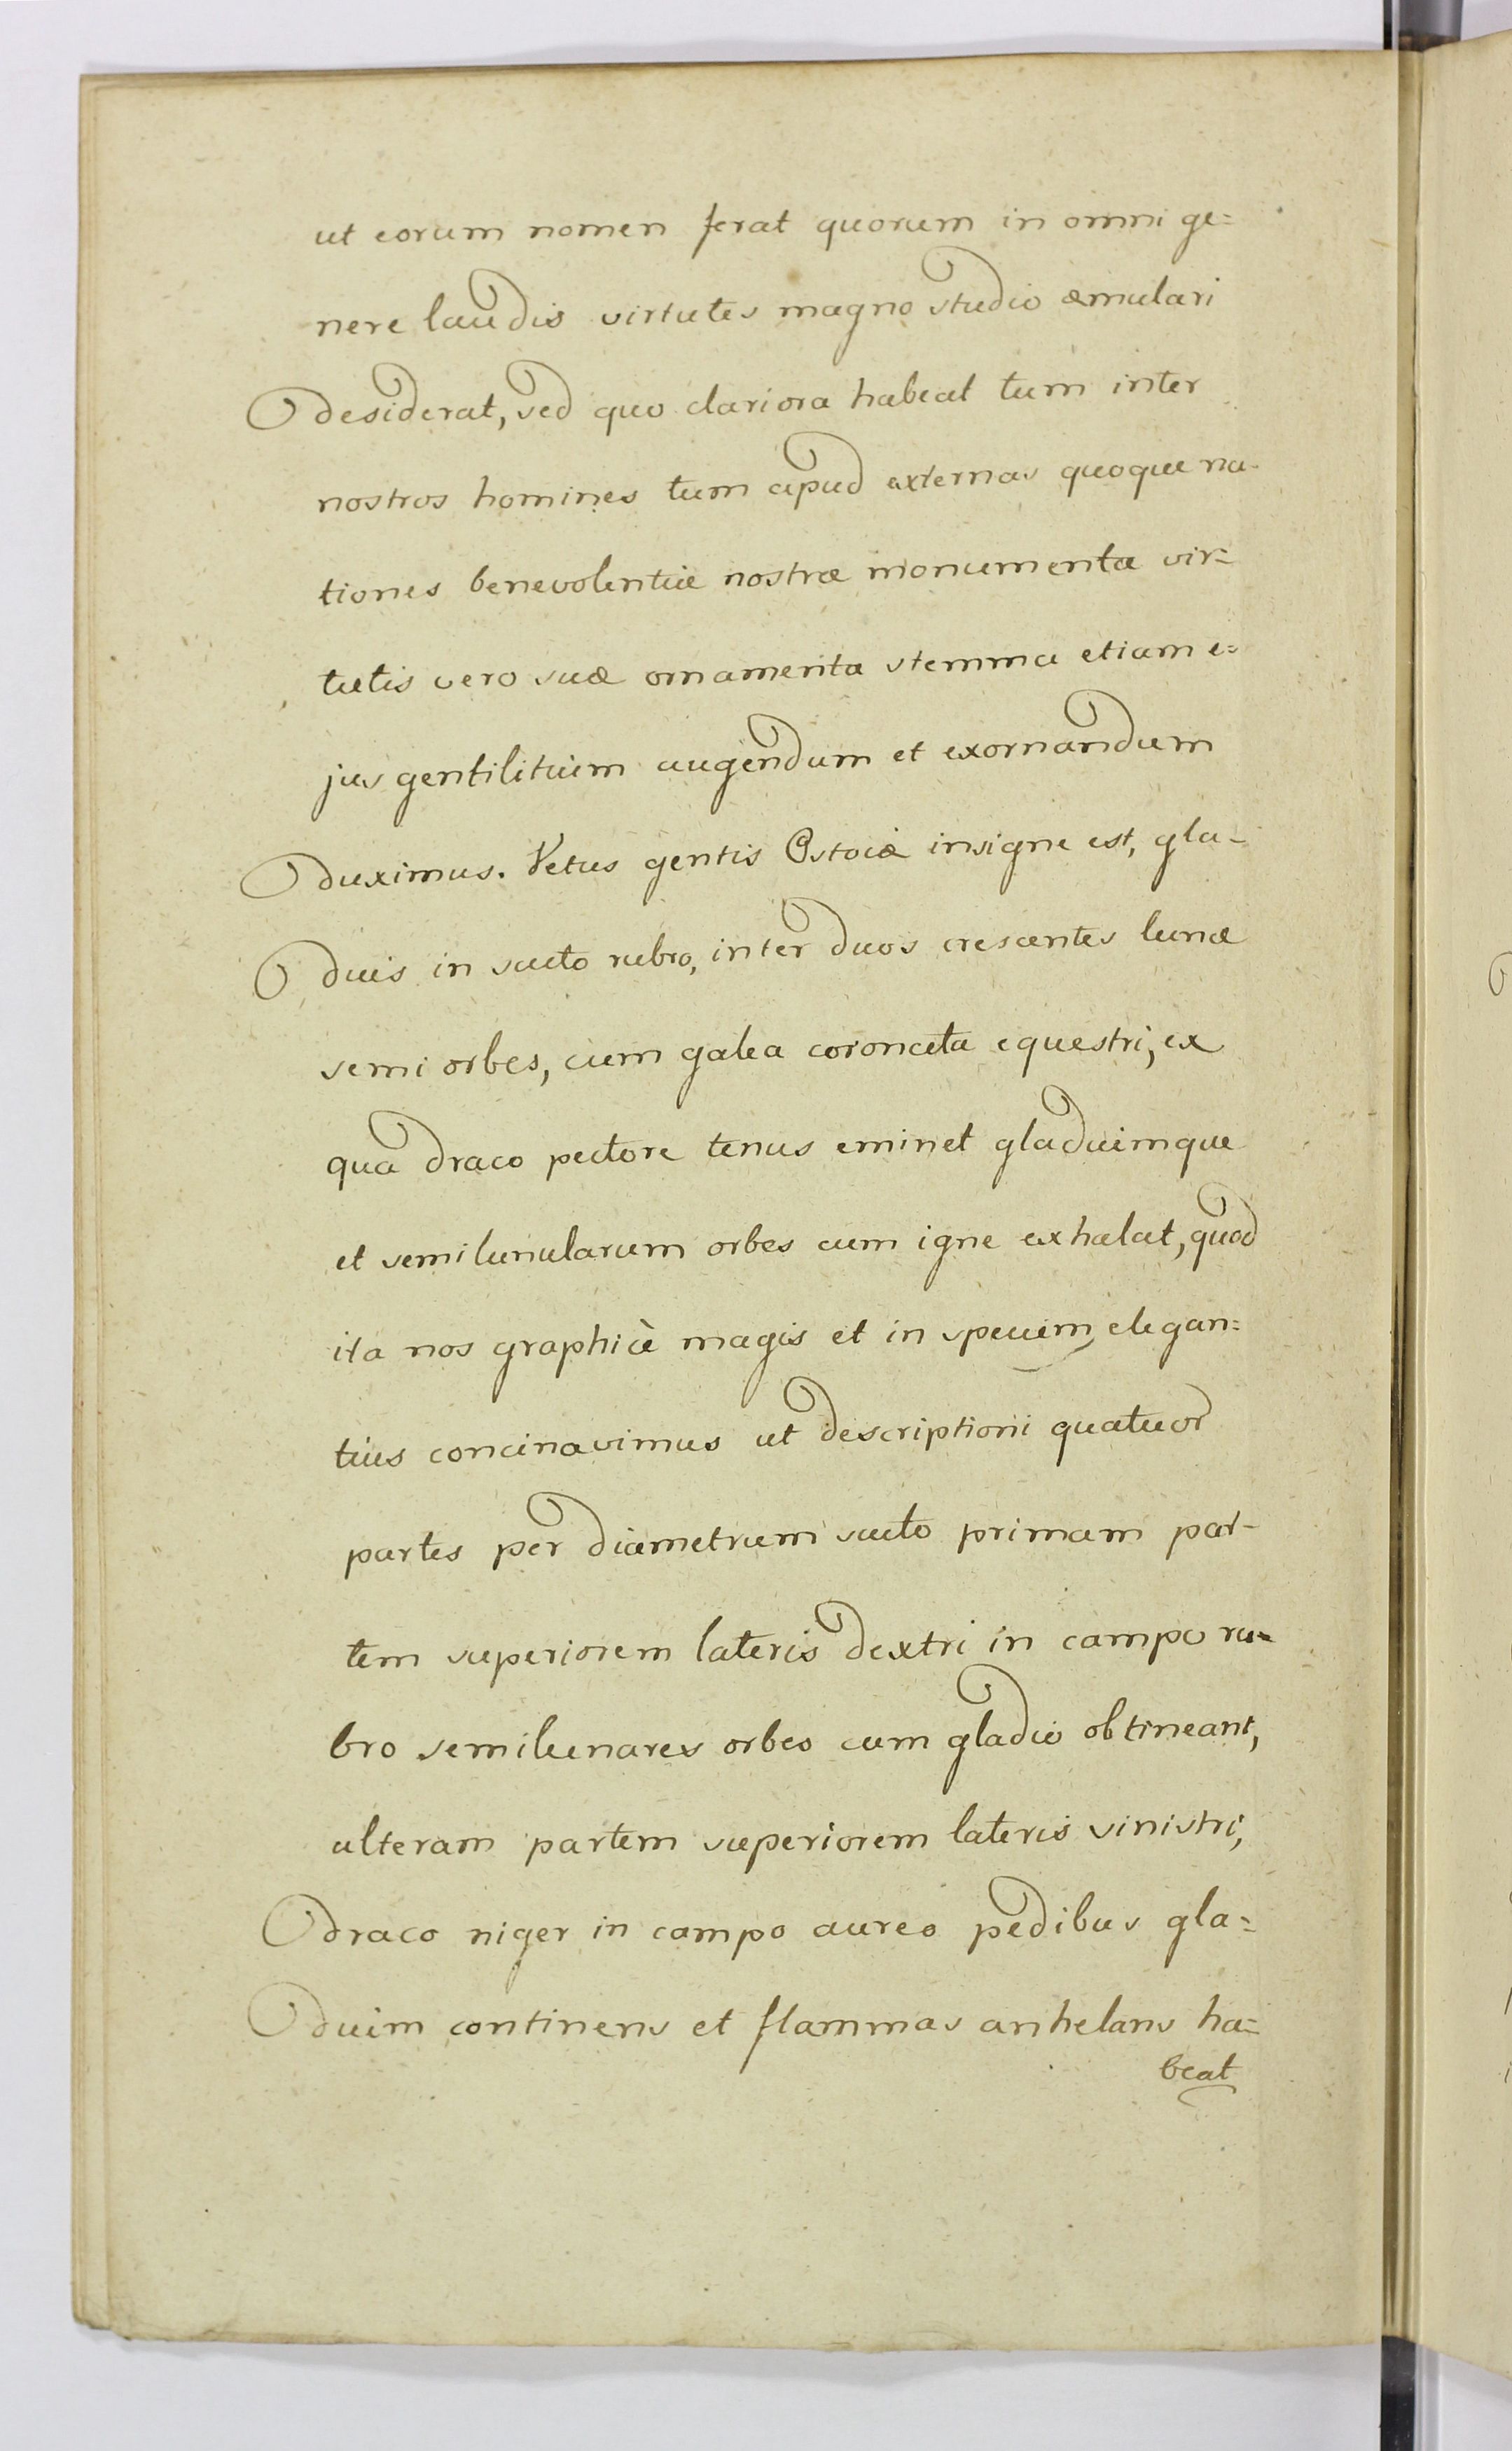 ut eorum nomen ferat quorum in omni ge=
nere laudis virtutes magno studio æmulari
desiderat, sed quo clariora habeat tum inter
nostros homines tum apud externas quoque na-
tiones benevolentiæ nostræ monumenta vir=
tutis vero suæ ornamenta stemma etiam e=
jus gentilitium augendum et exornandum
duximus. Vetus gentis Ostoiæ insigne est, gla-
dius in scuto rubro, inter duos crescentes lunæ
semi orbes, cum galea coronata equestri, ex
qua draco pectore tenus eminet gladiumque
et semilunularum orbes cum igne exhalat, quod
ita nos graphicè magis et in speciem elegan=
tius concinavimus ut descriptioni quatuor
partes per diametrum scuto primam par-
tem superiorem lateris dextri in campo ru=
bro semilunares orbes cum gladio obtineant,
alteram partem superiorem lateris sinistri,
draco niger in campo aureo pedibus gla=
dium continens et flammas anhelans ha=
beat